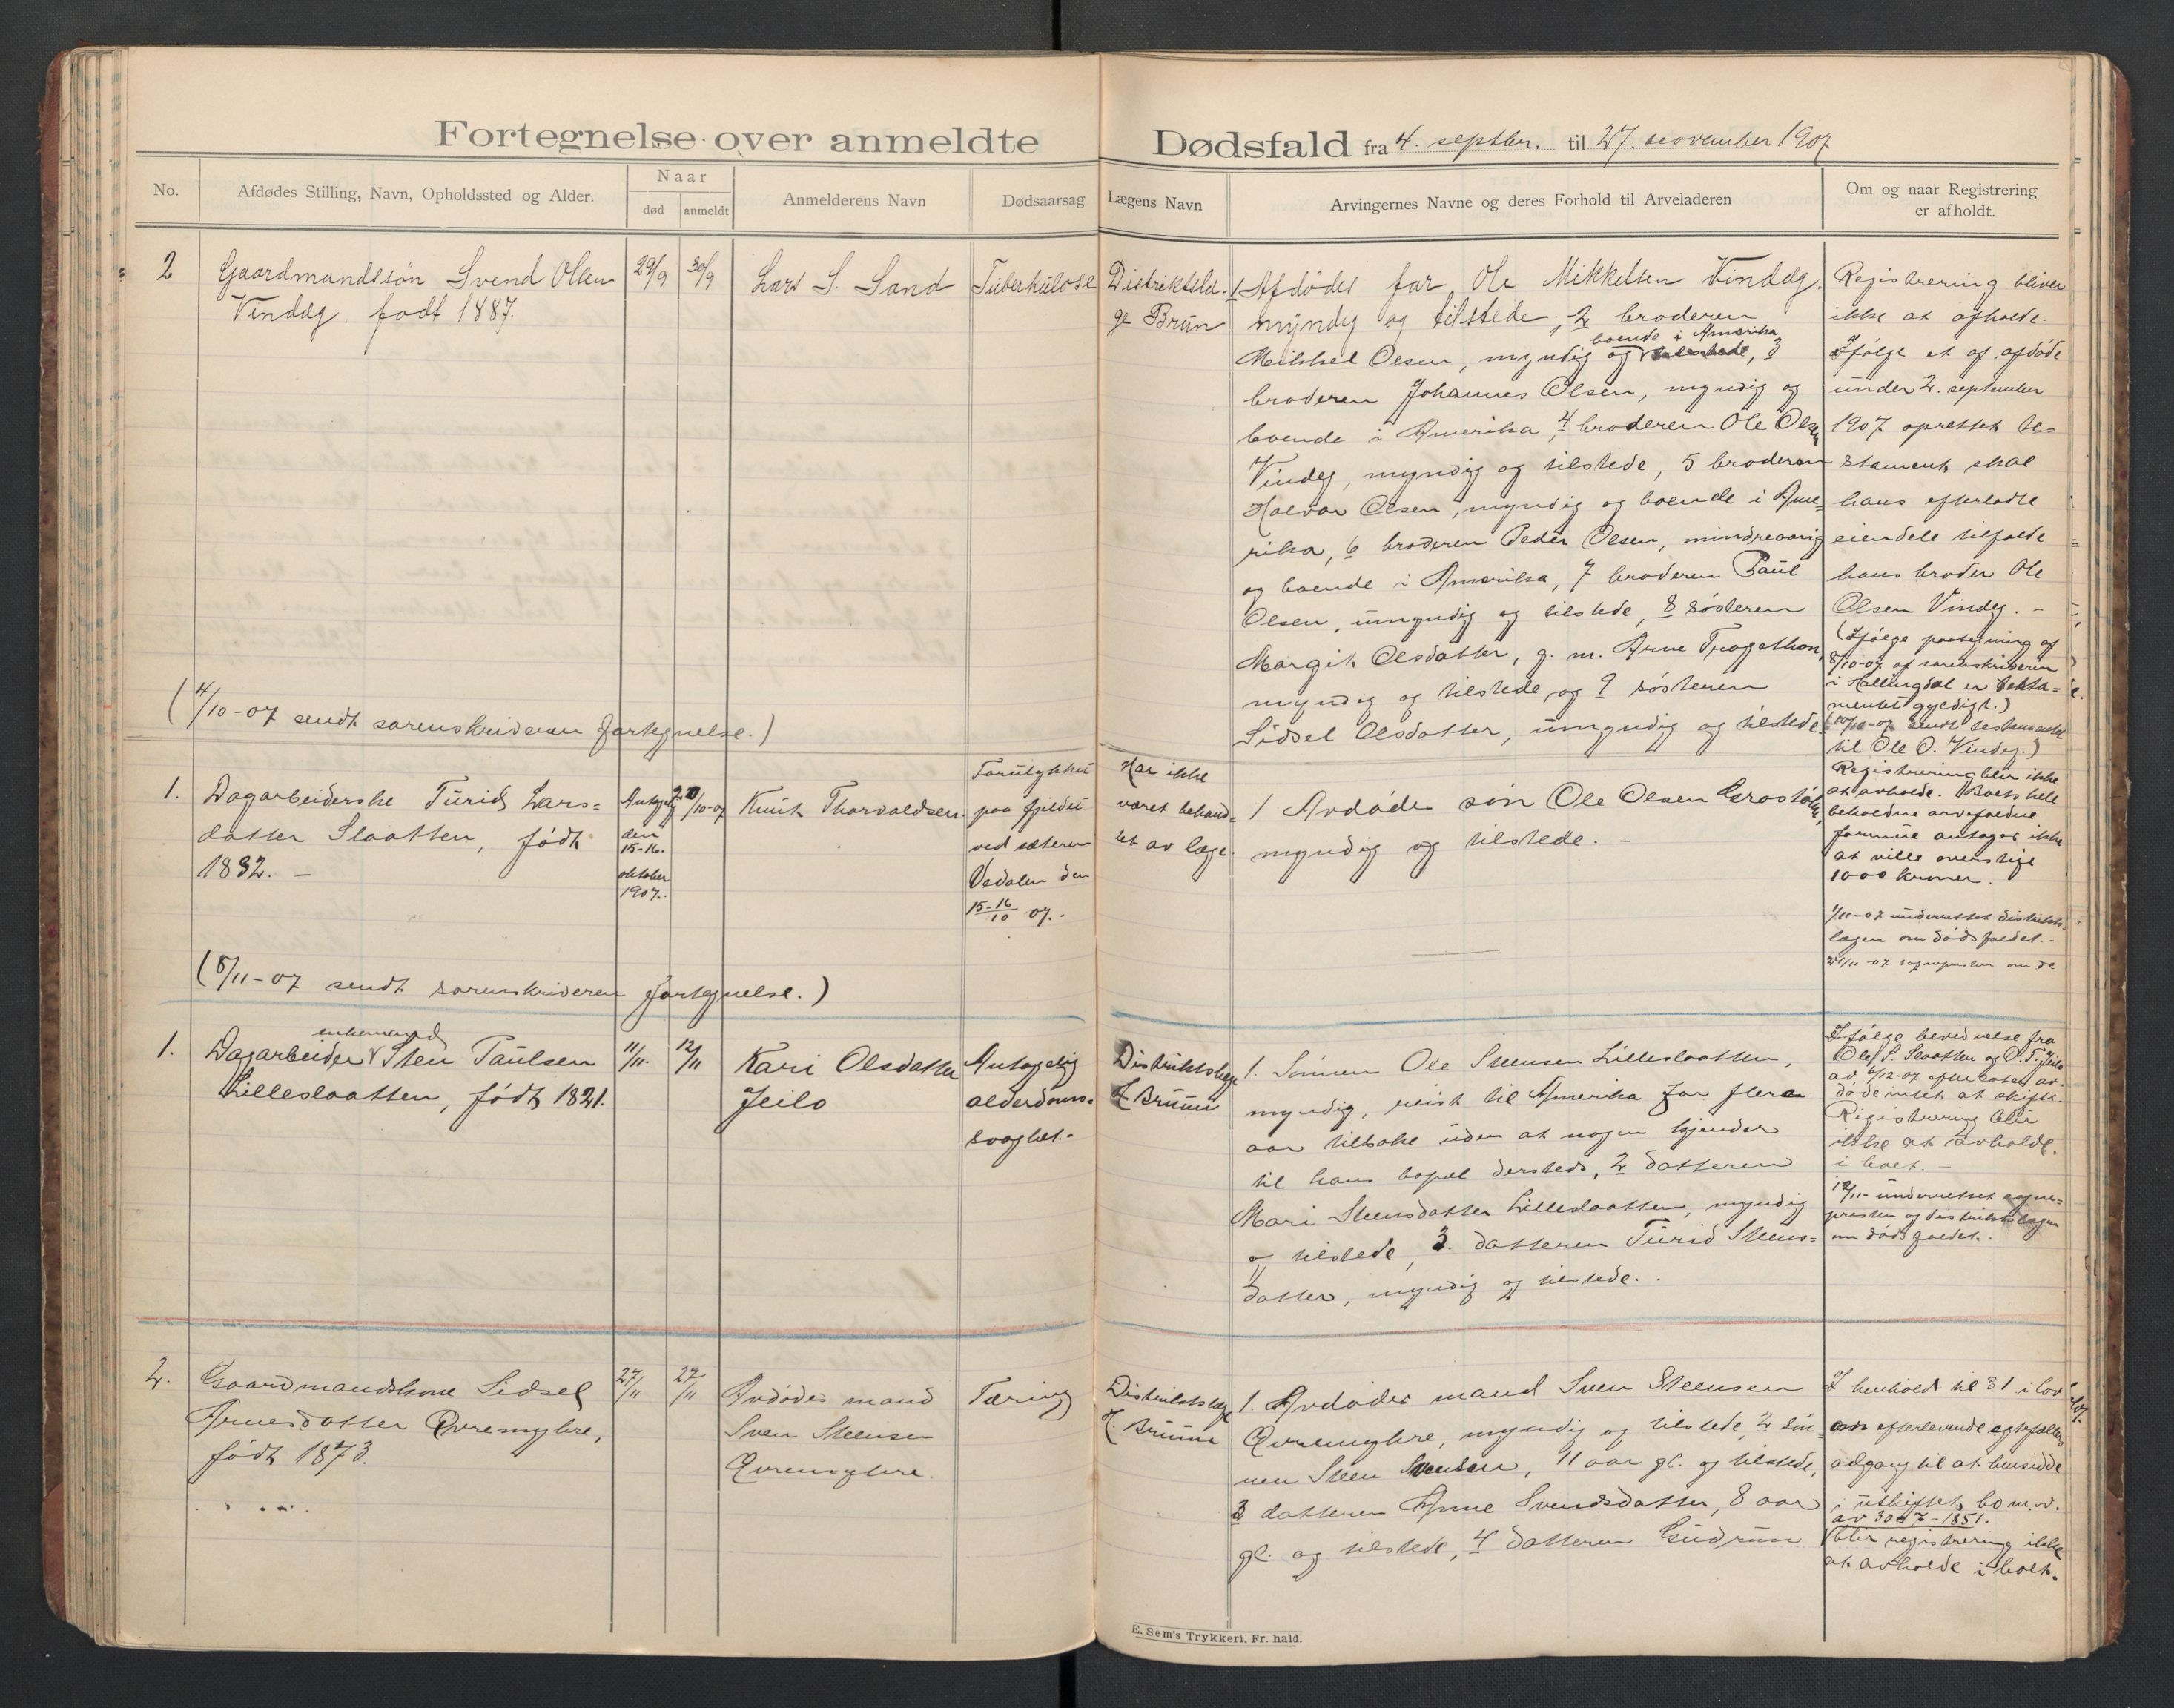 Fortegnelse over anmeldte Dødsfald fra 4. septbr. til 27. november 1907
No.
Afdødes Stilling, Navn, Opholdssted og Alder.
Naar
død
anmeldt
Anmelderens Navn
Dødsaarsag
Lægens Navn
Arvingernes Navne og deres Forhold til Arveladeren
Om og naar Registrering
er afholdt.
2
Gaardmandssøn Svend Olsen
Vindeg. født 1887.
29/9
30/9
Lars S. Sand
Tuberkulose
Distriktslæ-
ge Brun
1 Afdødes far Ole Mikkelsen Vindeg,
myndig og tilstede, 2 broderen
boende i Amerika
Mikkel Olsen, myndig og tilstede, 3
broderen Johannes Olsen, myndig og
boende i Amerika, 4 broderen Ole Olsen
Vindeg, myndig og tilstede, 5 broderen
Halvor Olsen, myndig og boende i Ame-
rika, 6 broderen Peder Olsen, mindreaarig
og boende i Amerika, 7 broderen Paul
Olsen, umyndig og tilstede, 8 søsteren
Margit Olsdatter, g. m. Arne Trogethon,
myndig og tilstede, og 9 søsteren
Sidsel Olsdatter, umyndig og tilstede.
Registrering bliver
ikke at afholde.
Ifølge et af afdøde
under 2. september
1907 oprettet te-
stament skal
hans efterladte
eiendele tilfalde
hans broder Ole
Olsen Vindeg. -
(Ifølge paategning af
8/10-07 af sorenskriveren
i Hallingdal er testa-
mentet gyldigt.)
(10/10-07 sendt testamentet
til Ole O. Vindeg.)
(4/10-07 sendt sorenskriveren fortegnelse.)
1.
Dagarbeiderske Turid Lars-
datter Slaatten, født
1832. -
Antagelig
den
15-16.
oktober
1907.
20/10-07
Knut Thorvaldsen
Forulykket
paa fjeldet
ved sæteren
Vedalen den
15-16/10 07.
Har ikke
været behand-
let av læge.
1 Avdødes søn Ole Olsen Grostølen,
myndig og tilstede. -
Registrering blir ikke
at avholde. Boets hele
beholdne arvefaldne
formue antages ikke
at ville overstige
1000 kroner.
1/11-07 underrettet distrikts-
lægen om dødsfaldet. -
2/11-07 sognepresten om do
(5/11-07 sendt sorenskriveren fortegnelse.)
1.
enkemand
Dagarbeider Sten Paulsen
Lilleslaatten, født 1821.
11/11.
12/11
Kari Olsdatter
Jeilo
Antagelig
alderdoms-
svaghet. -
Distriktslæge
H. Bruun
1. Sønnen Ole Steensen Lilleslaatten,
myndig, reist til Amerika for flere
aar tilbake uden at nogen kjender
til hans bopæl dersteds, 2 datteren
Mari Steensdatter Lilleslaatten, myndig
og tilstede, 3. datteren Turid Steens-
datter, myndig og tilstede. .
Ifølge bevidnelse fra
Ole S. Slaatten og O. T. Jeilo
av 6/12-07 efterlater av-
døde intet at skifte.
Registrering blir
ikke at avholde
i boet. -
12/11- underrettet sogne-
presten og distriktslægen
om dødsfaldet.
2.
Gaardmandskone Sidsel
Arnesdatter Øvremyhre,
født 1873.
27/11
27/11
Avdødes mand
Sven Steensen
Øvremyhre.
Tæring
Distriktslæge
H. Bruun
1. Avdødes mand Sven Steensen
Øvremyhre, myndig og tilstede, 2 søn-
nen Steen Svensen, 11 aar gl. og tilstede,
3 datteren Anne Svendsdatter, 8 aar
gl. og tilstede, 4 datteren Gudrun
I henhold til § 1 i lov
om efterlevende egtefælles
adgang til at hensidde
i uskiftet bo m. v.
av 30-7-1851.
blir registrering ikke
at avholde i boet.
E. Sem's Trykkeri. Fr. hald.